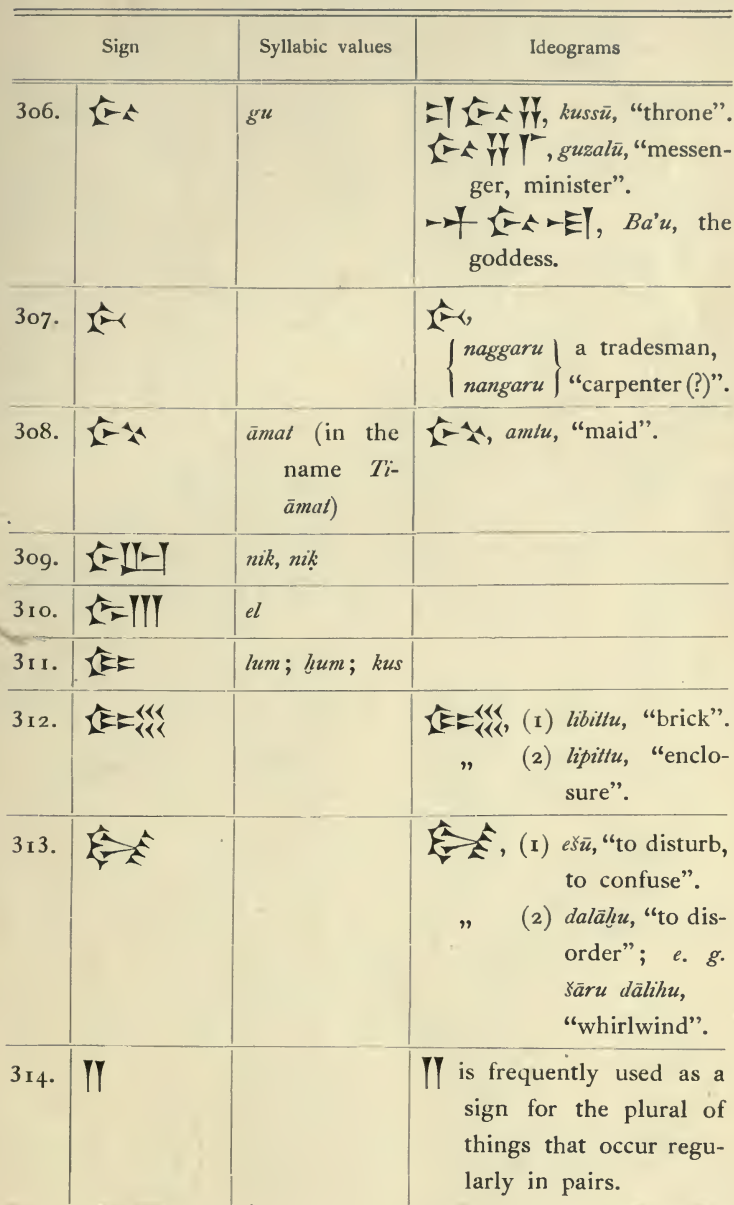 Sign Syllabic values Ideograms
306. 𒄖 gu 𒄑𒄖𒍝, kussū, “throne”.
𒄖𒍝𒇲, guzalū, “messen-
ger, minister”.
Ba’u, the
goddess.
307. 𒉄 𒉄,
naggaru a tradesman,
nangaru “carpenter (?)”.
308. 𒊩𒆳 āmat (in the 𒊩𒆳, amtu, “maid”.
name Ti-
āmat)
309. 𒊩𒌨 nik, niḳ
310. 𒂖 el
311. 𒈝 lum; ḫum; kus
312. 𒋞 𒋞, (1) libittu, “brick”.
„ (2) lipittu, “enclo-
sure”.
313. (1) ešū, “to disturb,
to confuse”.
„ (2) dalāḫu, “to dis-
order”; e. g.
šāru dālihu,
“whirlwind”.
314. 𒈫 𒈫 is frequently used as a
sign for the plural of
things that occur regu-
larly in pairs.